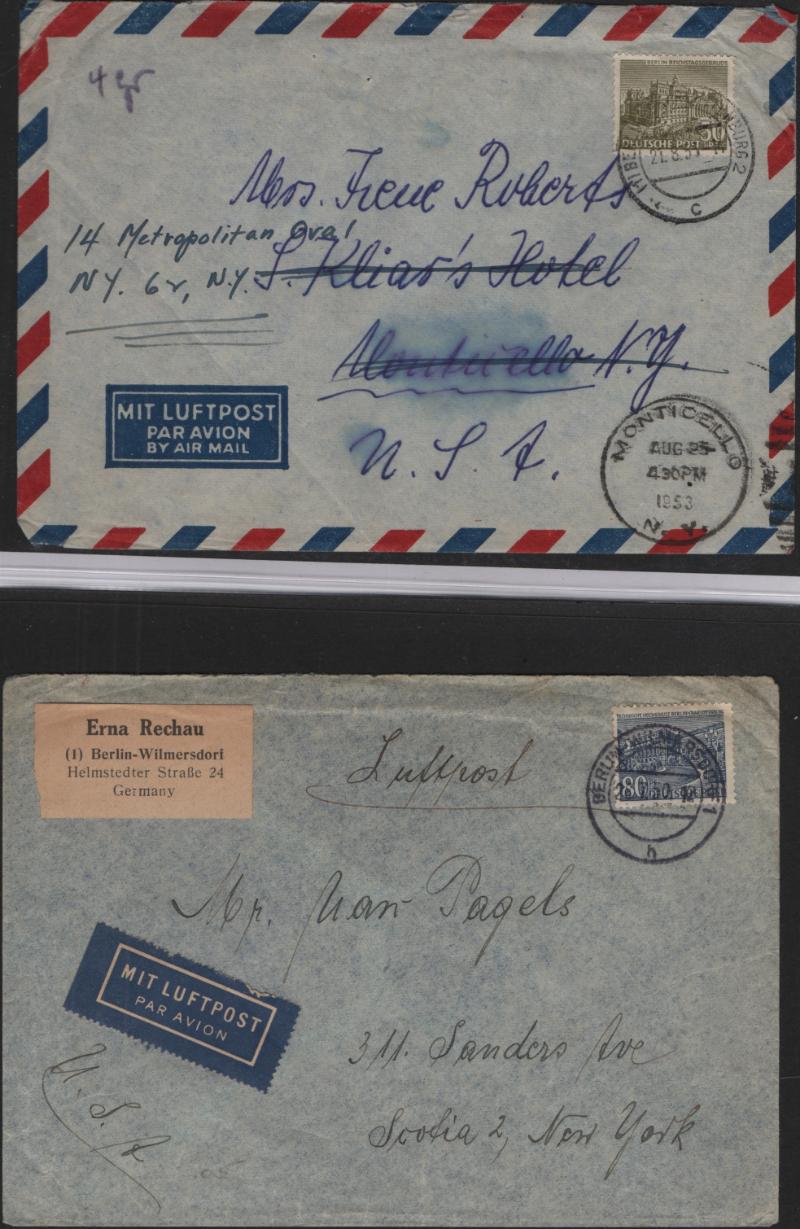 4 gr
BERLIN REICHSTAGSGEBÄUDE
50
DEUTSCHE POST
BURG 2
21. 8. 5
c
Mrs. Irene Roberts
14 Metropolitan Oval
NY. 62, N.Y.
S. Kliar's Hotel
Monticello N.Y.
U. S. A.
MIT LUFTPOST
PAR AVION
BY AIR MAIL
MONTICELLO
AUG 25
4 30 PM
1953
N. Y.
Erna Rechau
(1) Berlin-Wilmersdorf
Helmstedter Straße 24
Germany
Luftpost
80
BERLIN-WILMERSDORF 1
50
h
Mr. Pagels
MIT LUFTPOST
PAR AVION
311. Sanders Ave
U. S. A
Scotia 2, New York